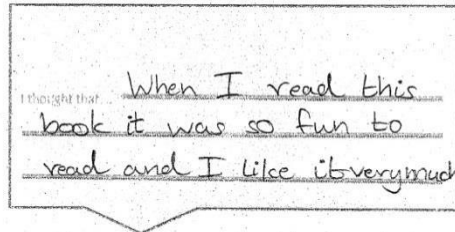 I thought that... When I read this
book it was so fun to
read and I like it verymuch